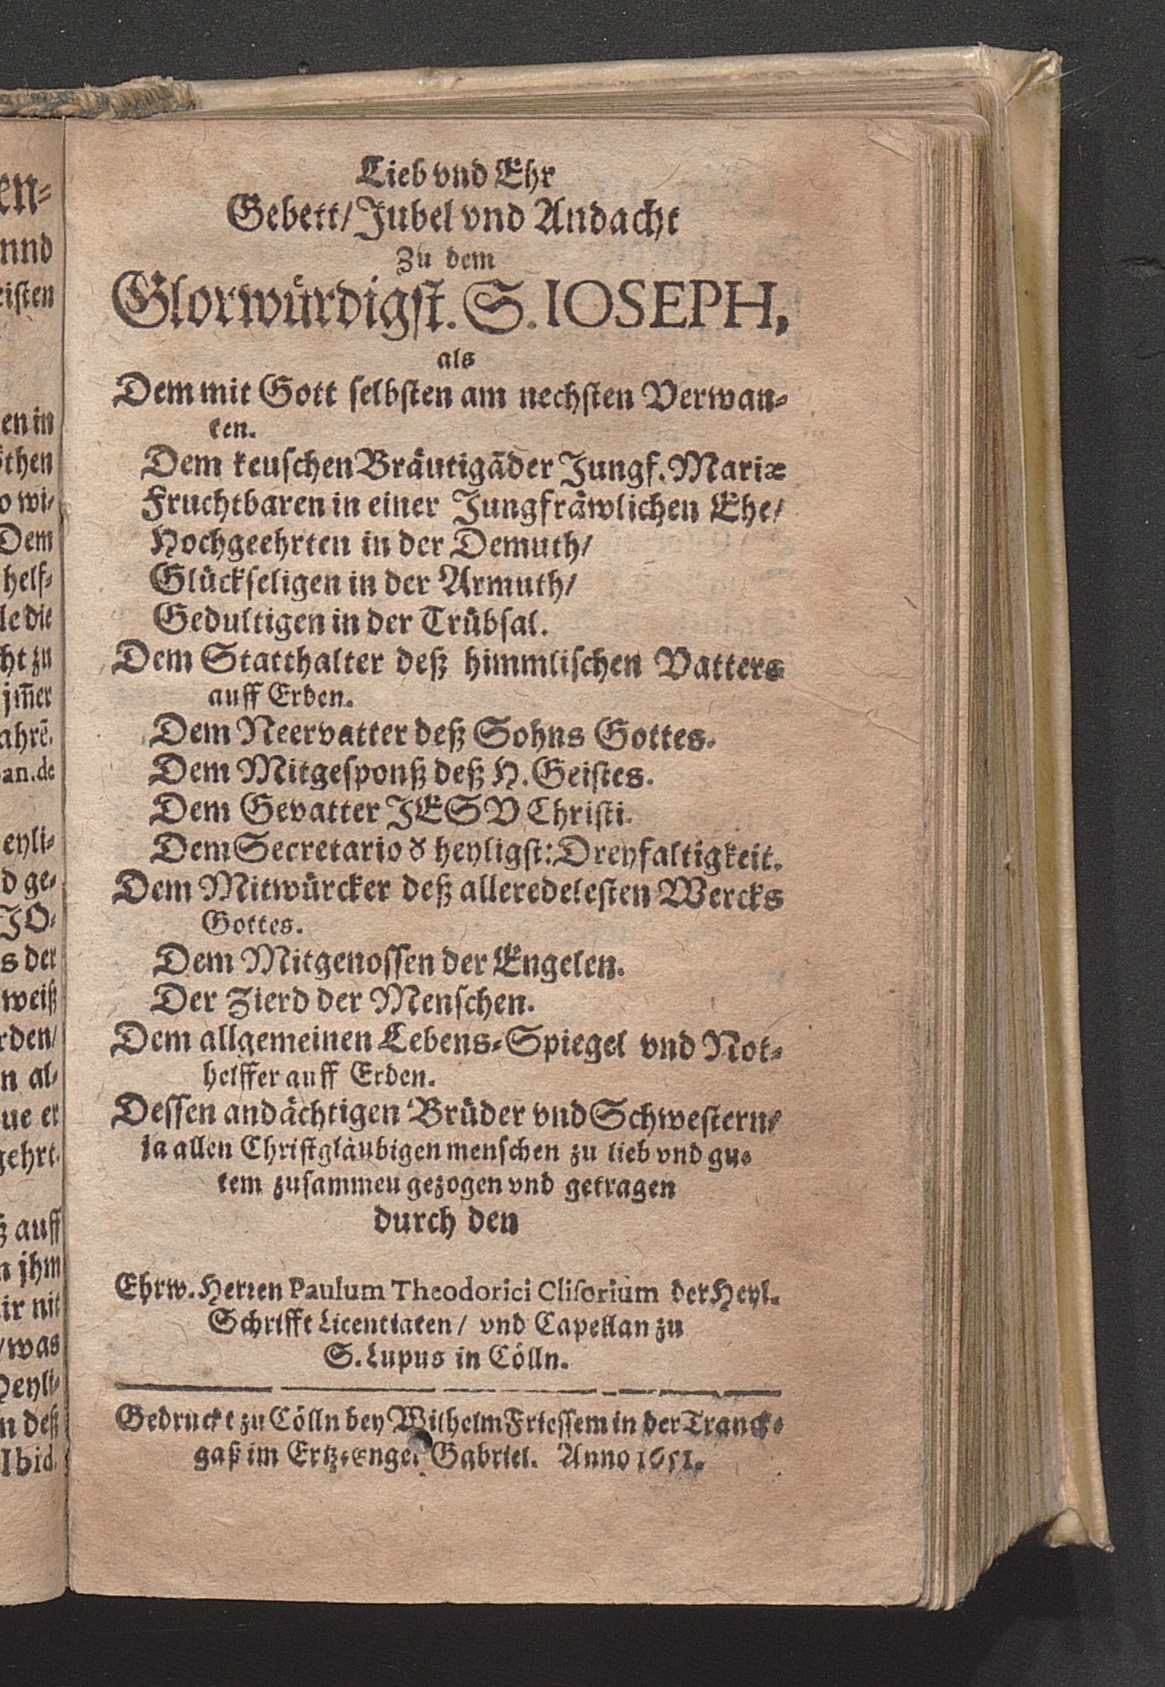 Lieb vnd Ehr
Gebett/ Jubel vnd Andacht
Zu dem
Glorwürdigst. S. IOSEPH,
als
Dem mit Gott selbsten am nechsten Verwan-
ten.
Dem keuschen Bräutigā der Jungf. Mariæ
Fruchtbaren in einer Jungfräwlichen Ehe/
Hochgeehrten in der Demuth/
Glückseligen in der Armuth/
Gedultigen in der Trübsal.
Dem Statthalter deß himmlischen Vatters
auff Erden.
Dem Neervatter deß Sohns Gottes.
Dem Mitgesponß deß H. Geistes.
Dem Gevatter JESV Christi.
Dem Secretario d' heyligst: Dreyfaltigkeit.
Dem Mitwürcker deß alleredelesten Wercks
Gottes.
Dem Mitgenossen der Engelen.
Der Zierd der Menschen.
Dem allgemeinen Lebens-Spiegel vnd Not-
helffer auff Erden.
Dessen andächtigen Brüder vnd Schwestern/
ja allen Christgläubigen menschen zu lieb vnd gu-
tem zusammen gezogen vnd getragen
durch den
Ehrw. Herren Paulum Theodorici Clisorium der Heyl.
Schrifft Licentiaten/ vnd Capellan zu
S. Lupus in Cölln.
Gedruckt zu Cölln bey Wilhelm Friessem in der Tranck-
gaß im Ertz-Engel Gabriel. Anno 1651.
en-
nnd
risten
en in
öthen
o wi-
Dem
helf-
le die
ht zu
jm̃er
ahrē.
an.de
eyli-
d ge-
JO-
s der
weiß
rden/
n al-
ue er
gehrt.
ß auff
n jhm
ir nit
/was
Heyli-
n deß
Ibid.